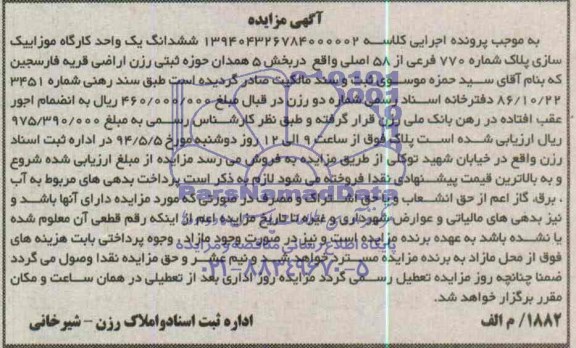 آگهی مزایده
به موجب پرونده اجرایی کلاسه ۱۳۹۴۰۴۳۲۶۷۸۴۰۰۰۰۰۲ ششدانگ یک واحد کارگاه موزاییک
سازی پلاک شماره ۷۷۰ فرعی از ۵۸ اصلی واقع دربخش ۵ همدان حوزه ثبتی رزن اراضی قریه فارسجین
که بنام آقای سید حمزه موسوی ثبت و سند مالکیت صادر گردیده است طبق سند رهنی شماره ۳۴۵۱
۸۶/۱۰/۲۲ دفترخانه اسناد رسمی شماره دو رزن در قبال مبلغ ۴۶۰/۰۰۰/۰۰۰ ریال به انضمام اجور
عقب افتاده در رهن بانک ملی رزن قرار گرفته و طبق نظر کارشناس رسمی به مبلغ ۹۷۵/۳۹۰/۰۰۰
ریال ارزیابی شده است پلاک فوق از ساعت ۹ الی ۱۲ روز دوشنبه مورخ ۹۴/۵/۵ در اداره ثبت اسناد
رزن واقع در خیابان شهید توکلی از طریق مزایده به فروش می رسد مزایده از مبلغ ارزیابی شده شروع
و به بالاترین قیمت پیشنهادی نقدا فروخته می شود لازم به ذکر است پرداخت بدهی های مربوط به آب
، برق، گاز اعم از حق انشعاب و یا حق اشتراک و مصرف در صورتی که مورد مزایده دارای آنها باشد و
نیز بدهی های مالیاتی و عوارض شهرداری و غیره تا تاریخ مزایده اعم از اینکه رقم قطعی آن معلوم شده
یا نشده باشد به عهده برنده مزایده است و نیز در صورت وجود مازاد ، وجوه پرداختی بابت هزینه های
فوق از محل مازاد به برنده مزایده مسترد خواهد شد و نیم عشر و حق مزایده نقدا وصول می گردد
ضمنا چنانچه روز مزایده تعطیل رسمی گردد مزایده روز اداری بعد از تعطیلی در همان ساعت و مکان
مقرر برگزار خواهد شد.
۱۸۸۲/ م الف
اداره ثبت اسنادواملاک رزن - شیرخانی
ParsNamadData
پایگاه اطلاع رسانی مناقصه و مزایده
۰۲۱-۸۸۳۴۹۶۷۰-۵